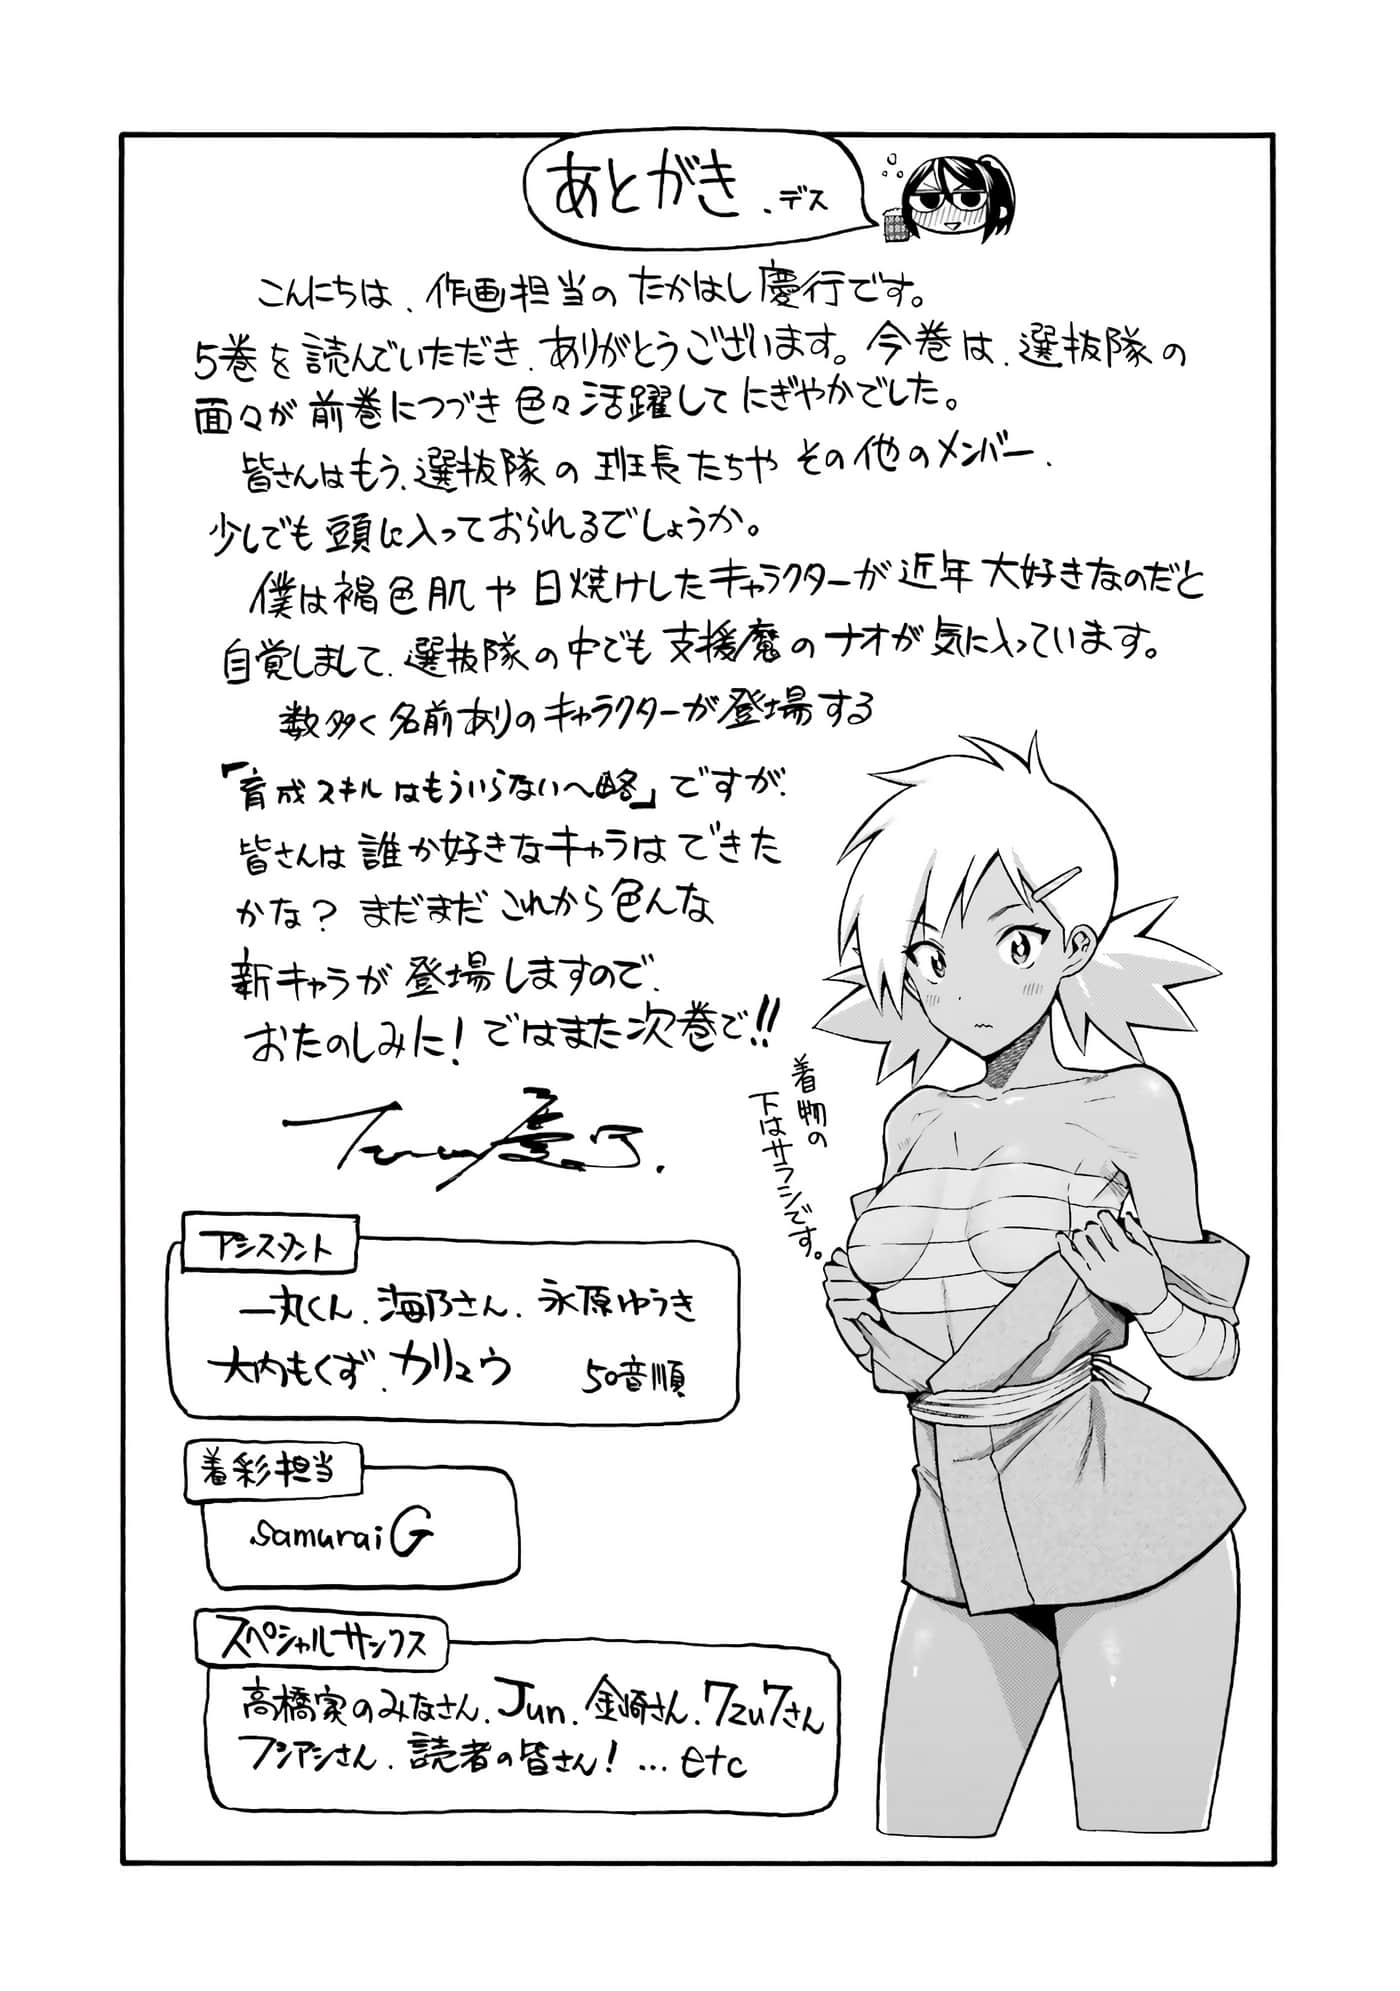 あとがき、デス
こんにちは、作画担当のたかはし慶行です。
5巻を読んでいただき、ありがとうございます。今巻は、選抜隊の
面々が前巻につづき色々活躍してにぎやかでした。
皆さんはもう、選抜隊の班長たちやその他のメンバー、
少しでも頭に入っておられるでしょうか。
僕は褐色肌や日焼けしたキャラクターが近年大好きなのだと
自覚しまして、選抜隊の中でも支援魔のナオが気に入っています。
数多く名前ありのキャラクターが登場する
「育成スキルはもういらない〜略」ですが、
皆さんは誰か好きなキャラはできた
かな？まだまだこれから色んな
新キャラが登場しますので、
おたのしみに！ではまた次巻で!!
着物の
下はサラシです。
アシスタント
一丸くん、海乃さん、永原ゆうき
大内もくず、カリュウ 50音順
着彩担当
samuraiG
スペシャルサンクス
高橋家のみなさん、Jun、金崎さん、7zu7さん
フシアシさん、読者の皆さん！…etc